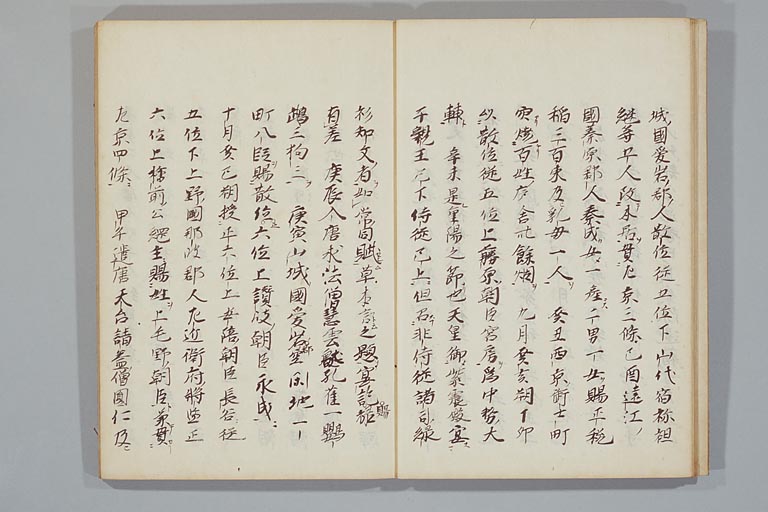 城國愛宕郡人散位從五位下山代宿祢祖
継等五人改本居貫左京三條己酉遠江
國秦原郡人秦成女一産二男一女賜正税
稲三百束及乳母一人癸丑西京衛士町
失火燒百姓廬舎計餘烟九月癸亥朔丁卯
以散位從五位上藤原朝臣宮房為中務大
輔辛未是重陽之節也天皇御紫宸殿宴
于親王已下侍從已上但召非侍從諸司緑
衫知文者如常同賦草木言之題宴訖賜禄
有差庚辰入唐求法僧慧雲獻孔雀一鸚
鵡三狗三庚寅山城國愛宕郡空閑地一
町八段賜散位六位上讃岐朝臣永成
十月癸巳朔授正六位上安倍朝臣長谷從
五位下上野國那波郡人左近衛府將監正
六位上檜前公綱主賜姓上毛野朝臣兼貫
左京四條甲午遣唐天台請益僧圓仁及